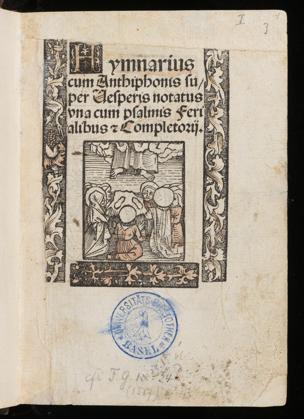 I
3
Hymnarius
cum Anthiphonis su/
per Vesperis notatus
vna cum psalmis Feri
alibus ⁊ Completorij.
UNIVERSITÄTS BIBLIOTHEK
BASEL